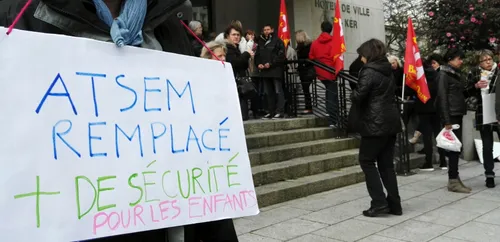 HÔTEL DE VILLE
KER
ATSEM
REMPLACÉ
+ DE SÉCURITÉ
POUR LES ENFANTS